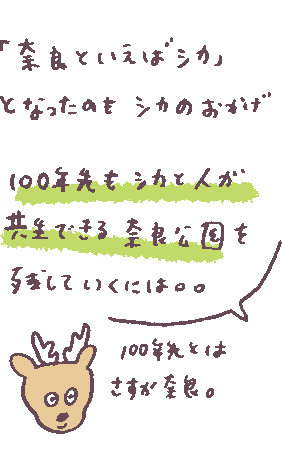 「奈良といえばシカ」
となったのもシカのおかげ
100年先もシカと人が
共生できる奈良公園を
残していくには。。
100年先とは
さすが奈良。